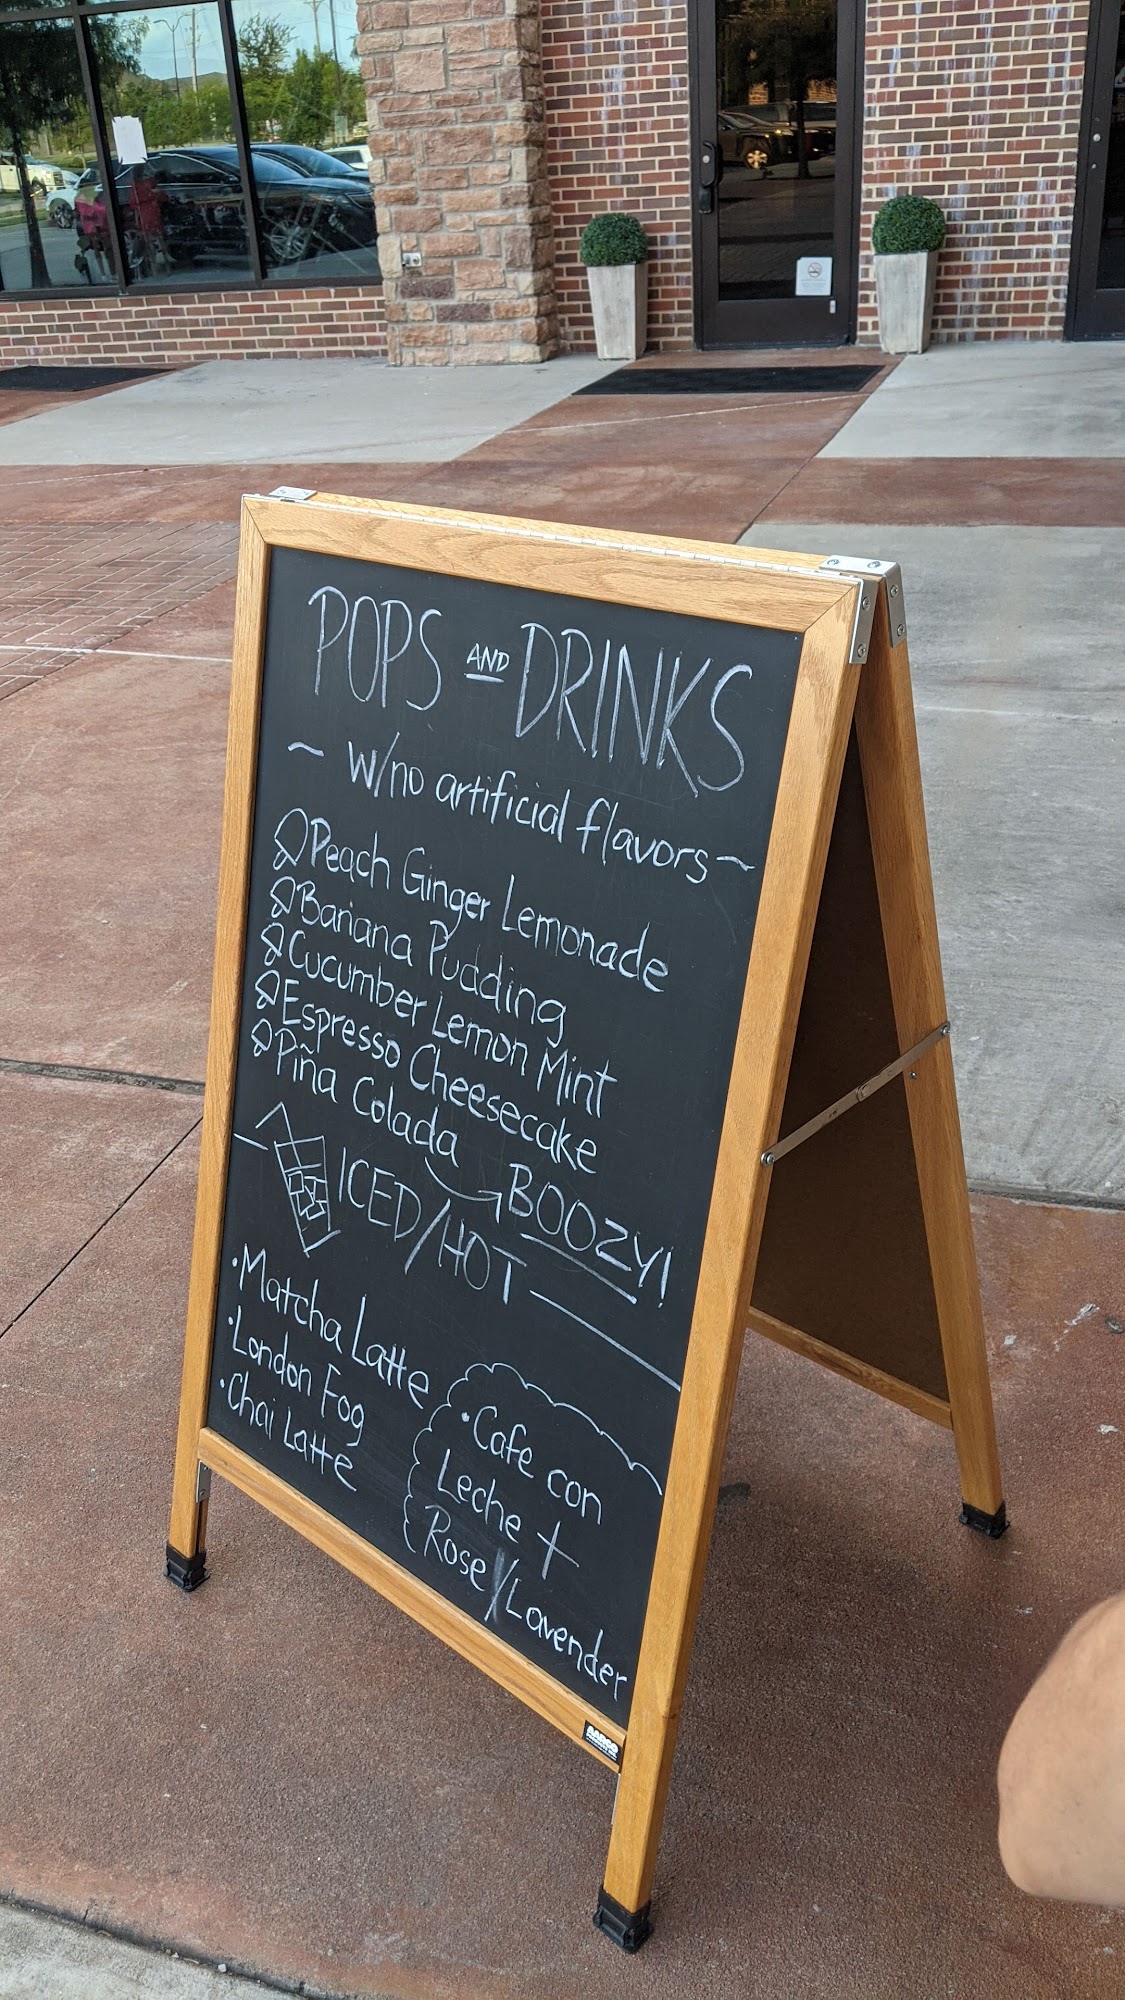 POPS AND DRINKS
~ w/no artificial flavors ~
Peach Ginger Lemonade
Banana Pudding
Cucumber Lemon Mint
Espresso Cheesecake
Piña Colada
BOOZY!
ICED/HOT
• Matcha Latte
• London Fog
• Chai Latte
• Cafe con
Leche +
Rose/Lavender
AARCO